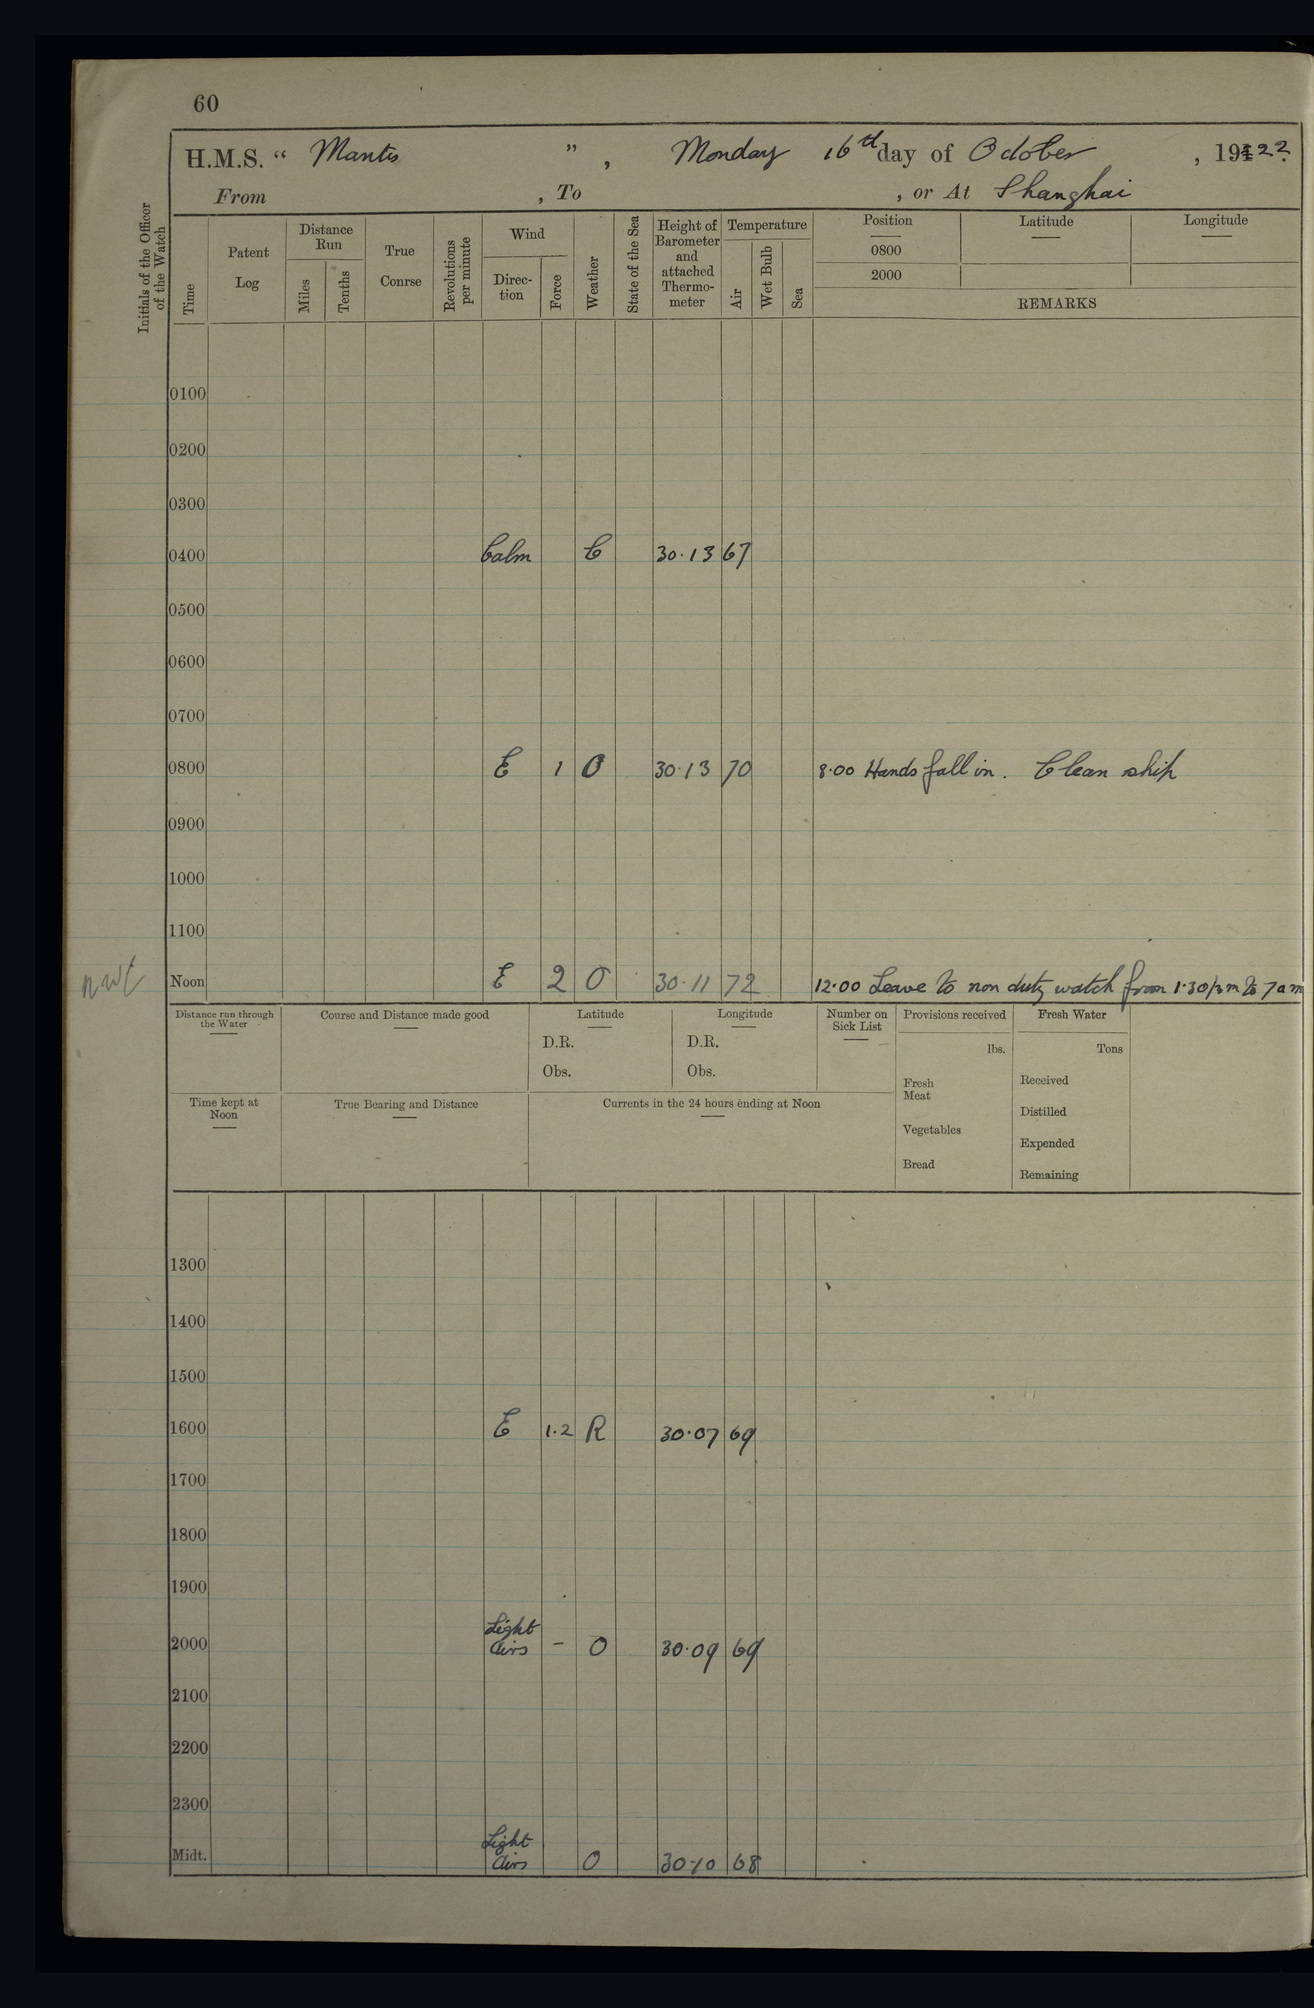 60
H.M.S. “ Mantis ” , Monday 16th day of October , 1922.
From , To , or At Shanghai
Initials of the Officer of the Watch
Time
Patent Log
Distance Run
Miles
Tenths
True Conrse
Revolutions per minute
Wind
Direc- tion
Force
Weather
State of the Sea
Height of Barometer and attached Thermo- meter
Temperature
Air
Wet Bulb
Sea
Position Latitude Longitude
0800
2000
REMARKS
0100
0200
0300
0400 Calm C 30.13 67
0500
0600
0700
0800 E 1 O 30.13 70 8.00 Hands fall in. Clean ship
0900
1000
1100
Noon E 2 O 30.11 72 12.00 Leave to non duty watch from 1.30pm to 7am
Distance run through the Water
Course and Distance made good
Latitude
D.R.
Obs.
Longitude
D.R.
Obs.
Number on Sick List
Provisions received
lbs.
Fresh Meat
Vegetables
Bread
Fresh Water
Tons
Received
Distilled
Expended
Remaining
Time kept at Noon
True Bearing and Distance
Currents in the 24 hours ending at Noon
1300
1400
1500
1600 E 1.2 R 30.07 69
1700
1800
1900
2000 Light airs - O 30.09 69
2100
2200
2300
Midt. Light airs O 30.10 68